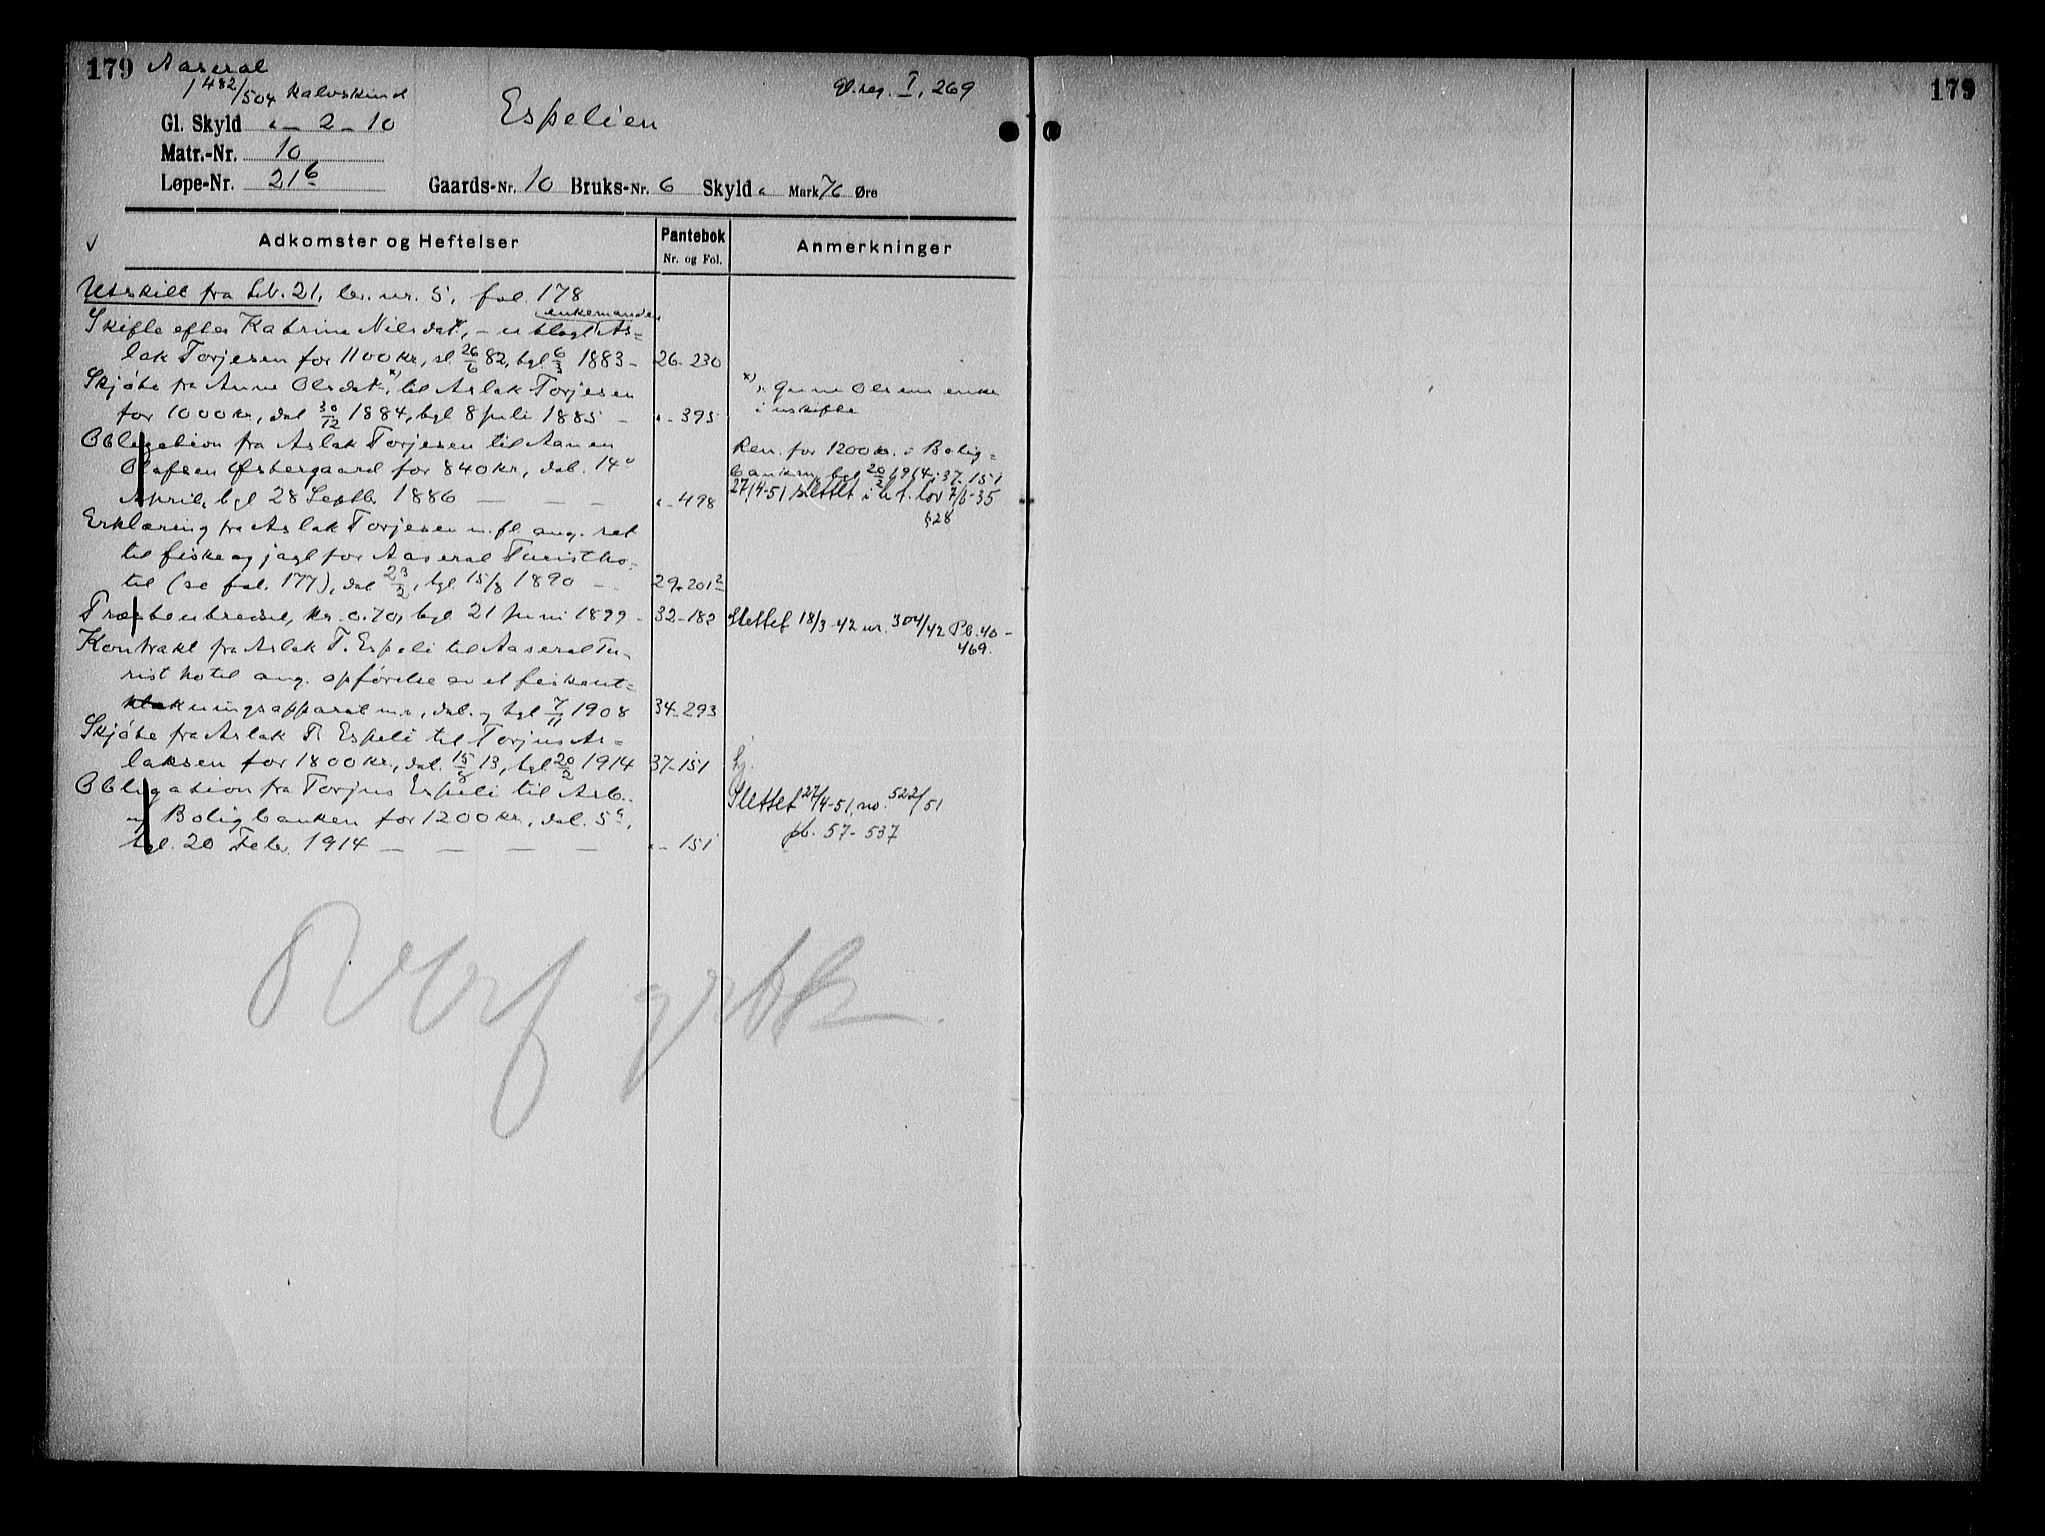 179 Aaseral
1 482/504 kalvskind
Gl. reg. I, 269
Espelien
Gl. Skyld „ - 2 - 10
Matr.-Nr. 10
Løpe-Nr. 21 6
Gaards-Nr. 10 Bruks-Nr. 6 Skyld „ Mark 76 Øre
Adkomster og Heftelser
Pantebok
Nr. og Fol.
Anmerkninger
Utskilt fra Lb. 21, br. nr. 5, fol. 178
enkemanden
Skifte efter Katrine Nilsdat., - utlagt As=
lak Torjesen for 1100 kr., sl. 26/6 82, tgl 6/3 1883 - 26-230
Skjøte fra Anne Olsdat. x) til Aslak Torjesen
for 1000 kr., dat 30/12 1884, tgl 8 juli 1885 - „- 395
x) Olsens enke
i uskifte
Obligation fra Aslak Torjesen til Aanen
Olafsen Østergaard for 840 kr., dat. 14
April, tgl 28 Septbr. 1886 - - - „- 498
Ren. for 1200 kr. i Bolig=
banken, tgl 20/2 1914, 37-151
27/4-51 slettet i h.t. lov 7/6-35
§ 28
Erklæring fra Aslak Torjesen m.fl. ang. ret
til fiske og jagt for Aaseral Turistho=
tel (se fol. 177), dat 23/2, tgl 15/8 1890 - 29-201 2
Fræstenbredsel, kr. 0.70, tgl 21 juni 1899 - 32-182
Slettet 18/3-42 nr. 304/42 Pb. 40-
469.
Kontrakt fra Aslak T. Espeli til Aaseral Tu=
rist hotel ang. opførelse av et fiskeut=
kningsapparat m.v., dat. og tgl 7/11 1908 34-293
Skjøte fra Aslak T. Espeli til Torjus As=
laksen for 1800 kr., dat. 15/8 13, tgl 20/2 1914 37-151 hj.
Obligation fra Torjus Espeli til Arb.
og Boligbanken for 1200 kr., dat. 5,
tgl. 20 Febr. 1914 - - - - „- 151
Slettet 27/4-51, no. 522/51
pb. 57-537
179